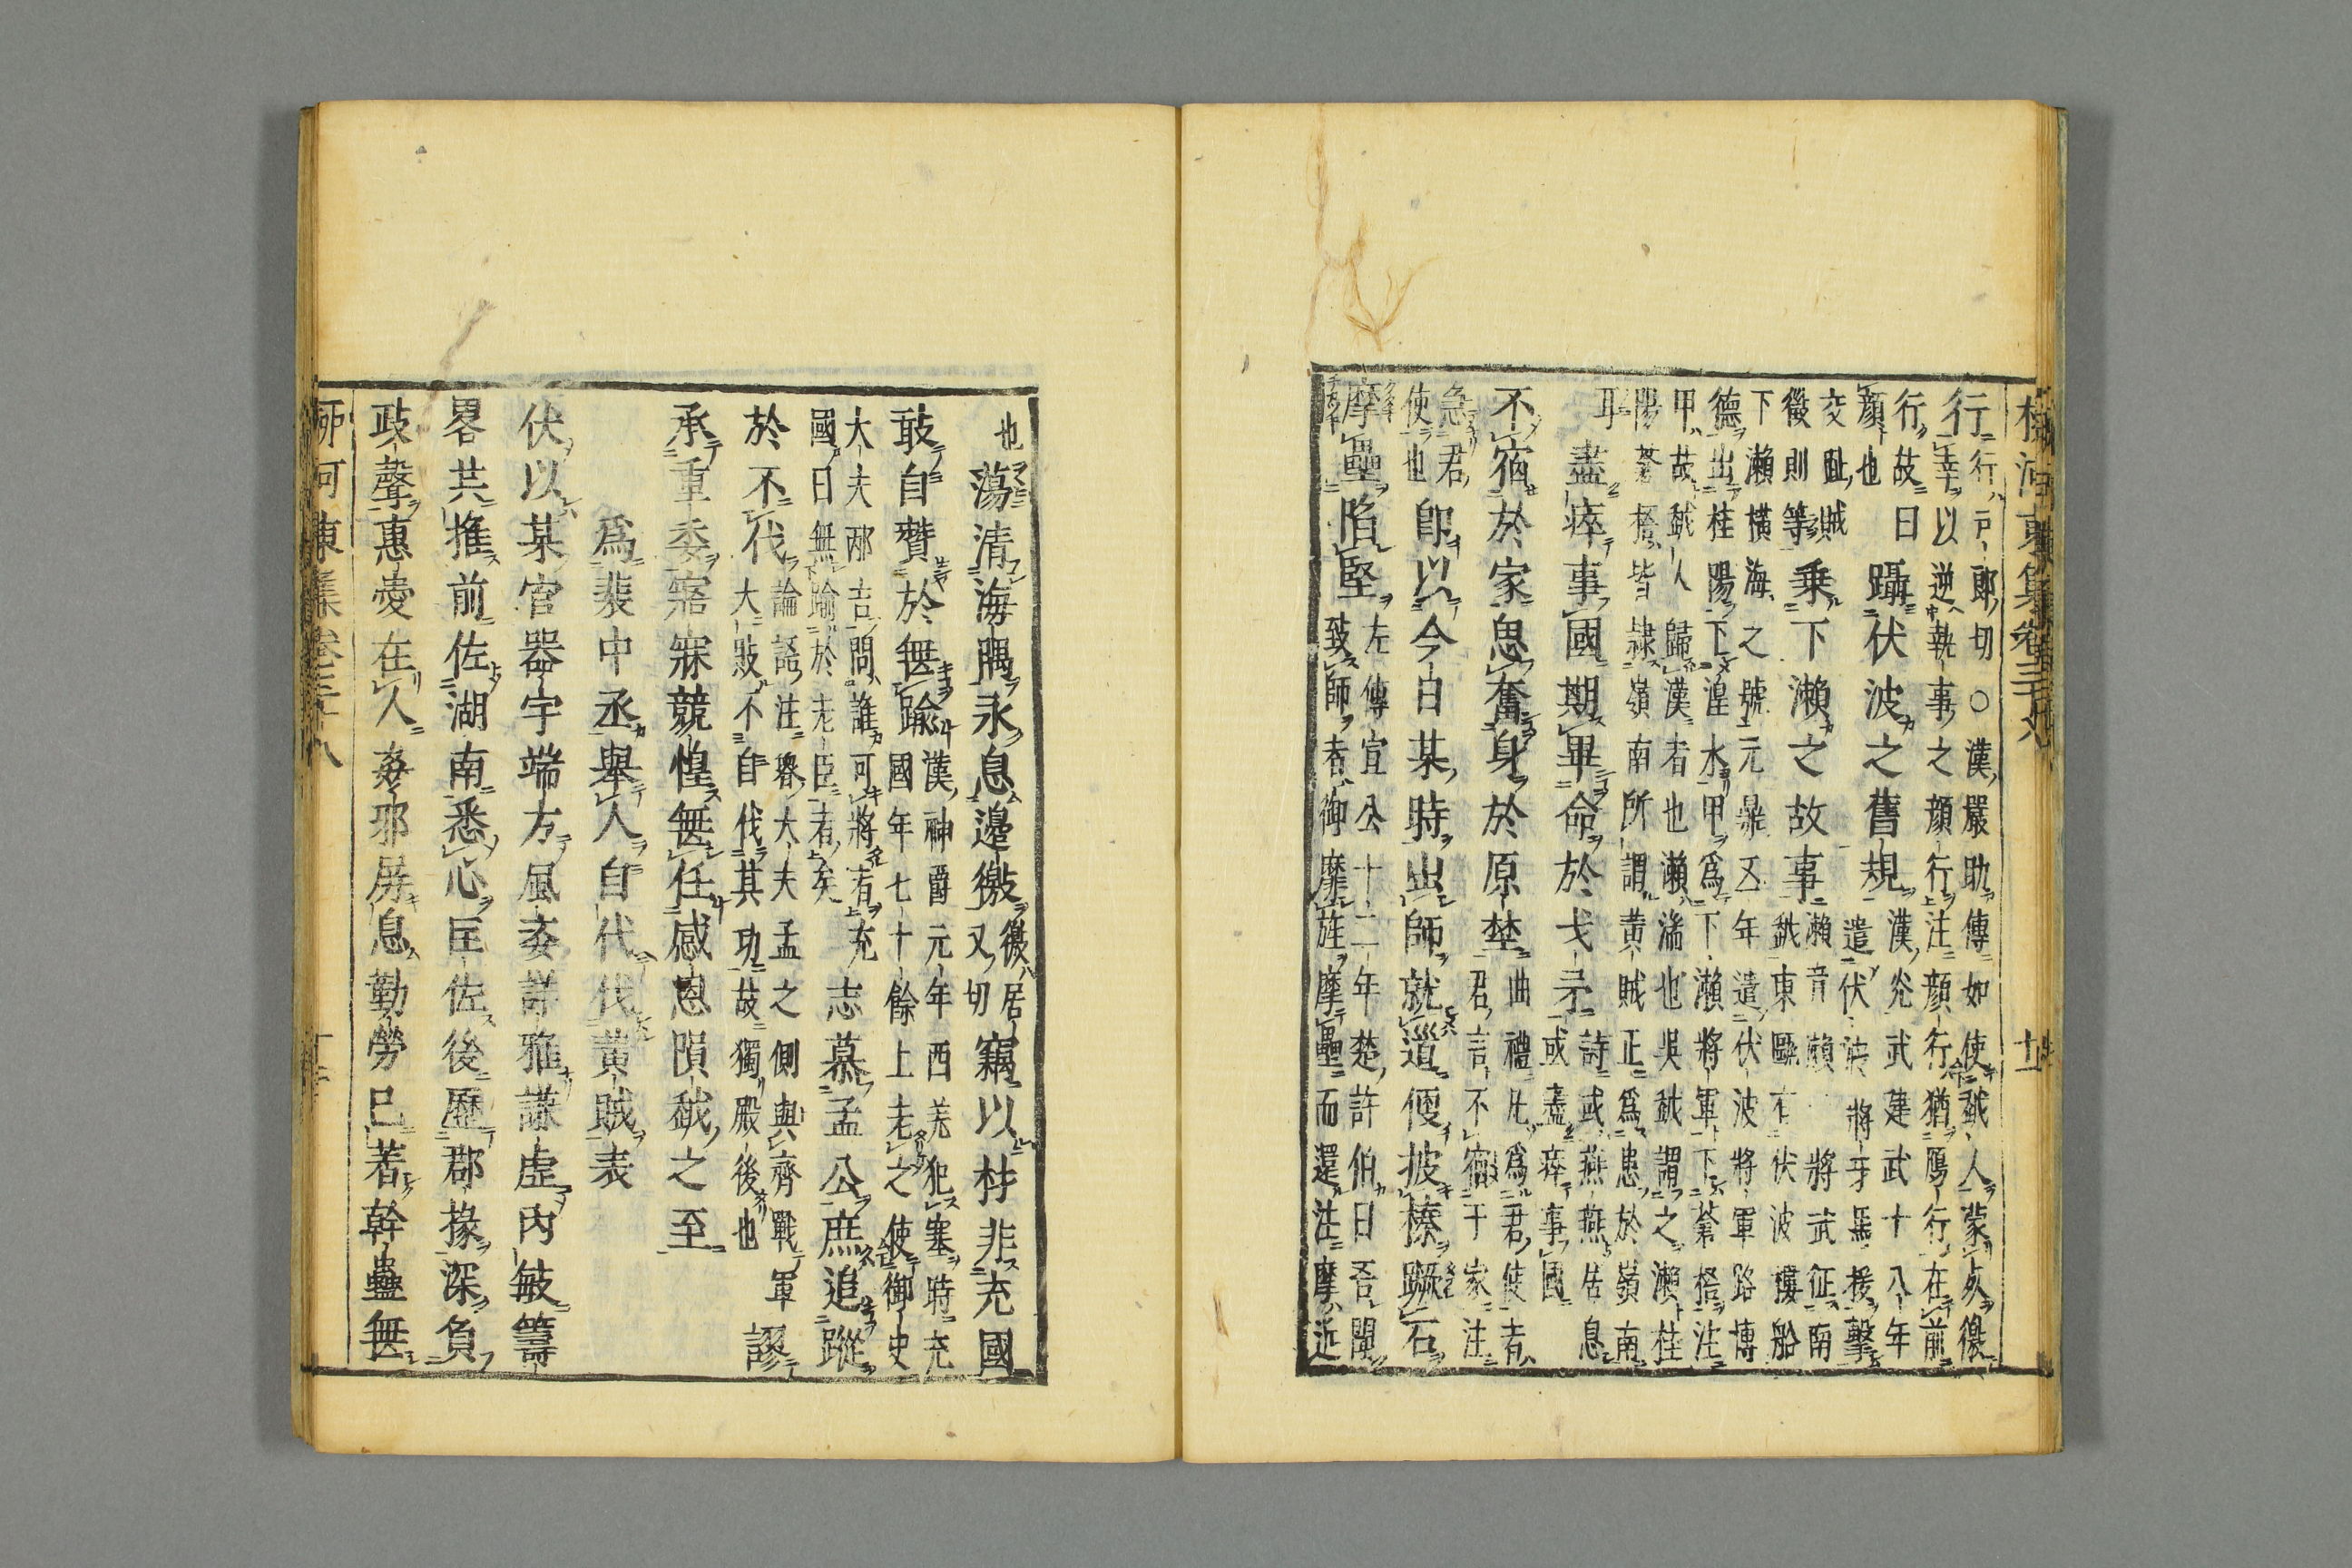 柳河東集卷三十八 十一
行行戸郎切○漢嚴助傳如使越人蒙死徼
幸以逆執事之顔行注顔行猶鴈行在前
行故曰
顔也
躡伏波之舊規
漢光武建武十八年
遣伏波將軍馬援擊
交趾賊
徵則等
乗下瀨之故事
瀨音頼 將武征南
越東甌有伏波樓船
下瀨橫海之號元鼎五年遣伏波將軍路博
德出桂陽下湟水甲爲下瀨將軍下蒼梧注
甲故越人歸漢者也瀨湍也吳越謂之瀨桂
陽蒼梧皆隷嶺南所謂黄賊正爲患於嶺南
耳
盡瘁事國期畢命於戈矛
詩或燕燕居息
或盡瘁事國
不宿於家思奮身於原埜
曲禮凡爲君使者
君言不宿于家注
急君
使也
卽以今日某時出師就道便披榛蹶石
摩壘陷堅
左傳宣公十二年楚許伯曰吾聞
致師者御靡旌摩壘而還注摩近
也
蕩清海隅永息邊徼
徼居
又切
竊以材非充國
敢自贊於無踰
漢神爵元年西羌犯塞時充
國年七十餘上老之使御史
大夫邴吉問誰可將者充
國曰無踰於老臣者矣
志慕孟公庶追蹤
於不伐
論語注魯大夫孟之側與齊戰軍
大敗不自伐其功故獨殿後也
謬
承重委寤寐競惶無任感恩隕越之至
爲裴中丞舉人自代伐黄賊表
伏以某官器宇端方風委詳雅謙虚內敏籌
畧共推前佐湖南悉心匡佐後歷郡掾深負
政聲惠愛在人姦邪屏息勤勞已著幹蠱無
柳河東集卷三十八